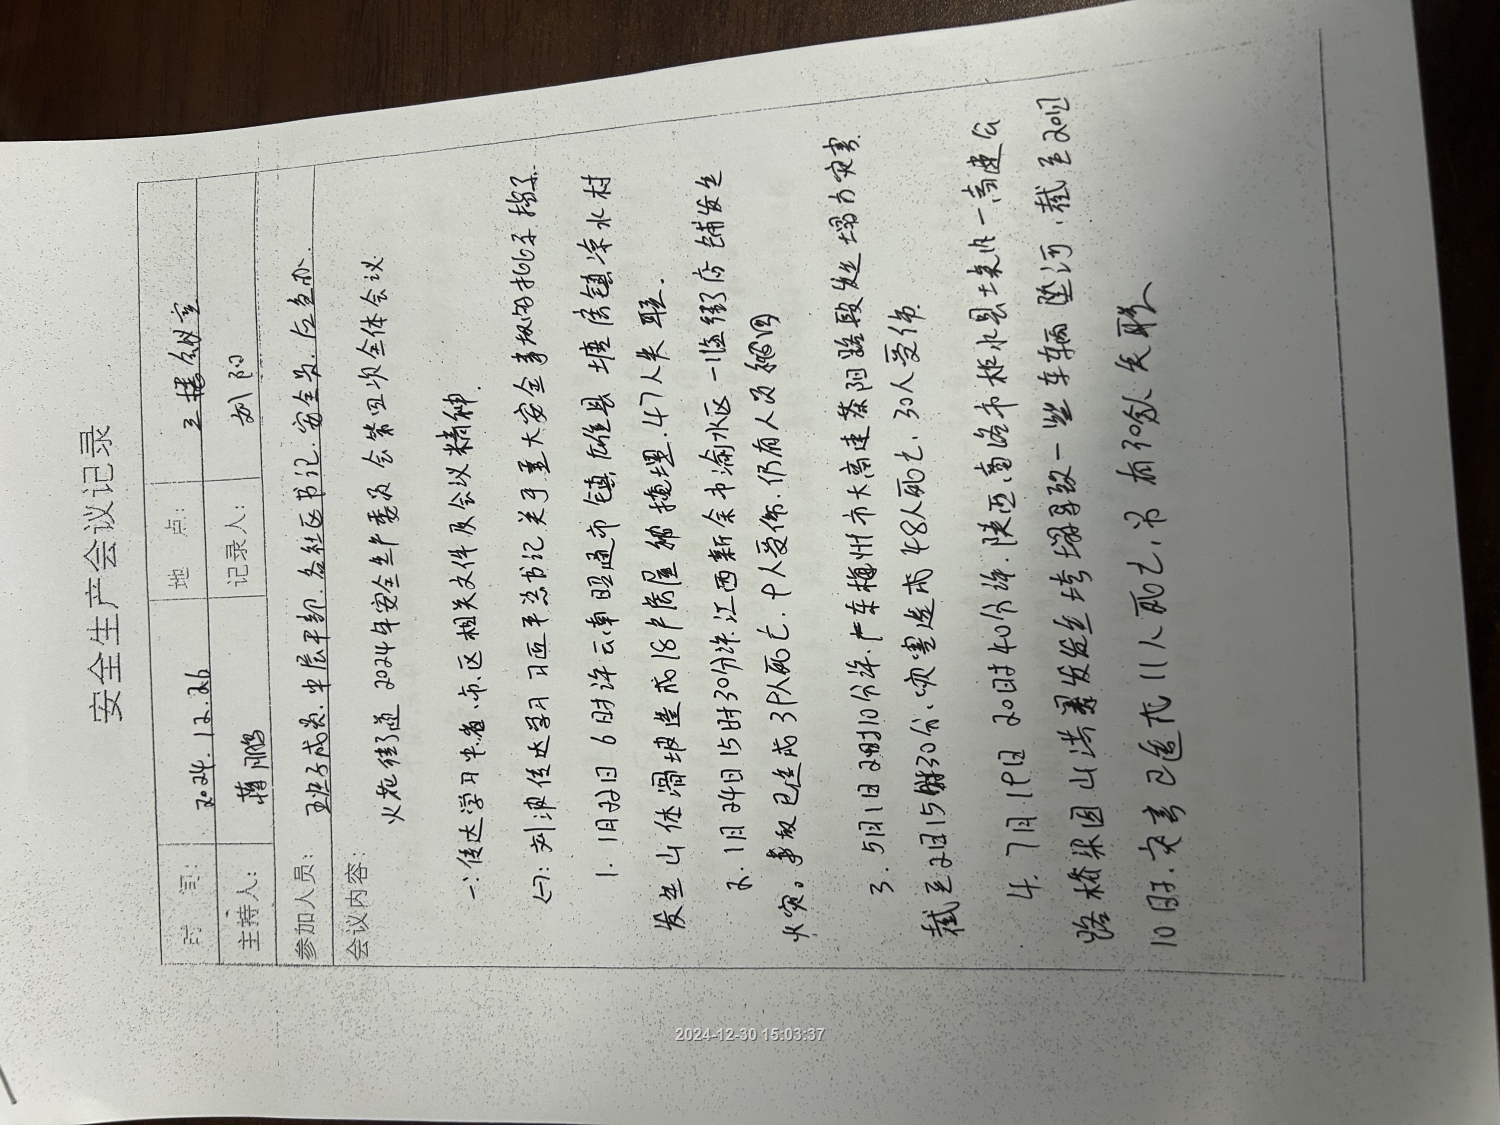 安全生产会议记录
时 间: 2024.12.26 地 点: 三楼会议室
主持人: 蒋鹏 记录人: 刘阳
参加人员: 班子成员.中层干部.各社区书记.安全员.应急办.
会议内容:
火花街道2024年安全生产委员会第四次全体会议
一:传达学习中.省.市.区相关文件及会议精神.
(一):刘波传达学习习近平总书记关于重大安全事故的批示指示.
1. 1月22日6时许云南昭通市镇雄县塘房镇凉水村
发生山体滑坡造成18户房屋被掩埋.47人失联.
2. 1月24日15时30分许.江西新余市渝水区一临街店铺发生
火灾。事故已造成39人死亡.9人受伤.仍有人员被困
3. 5月1日2时10分许.广东梅州市大高速茶阳路段发生塌方灾害.
截至2日15时30分.灾害造成48人死亡.30人受伤.
4. 7月19日20时40分许.陕西商洛市柞水县境内一高速公
路桥梁因山洪暴发发生垮塌导致一些车辆坠河.截至20日
10日时.灾害已造成11人死亡.另有30余人失联
2024-12-30 15:03:37